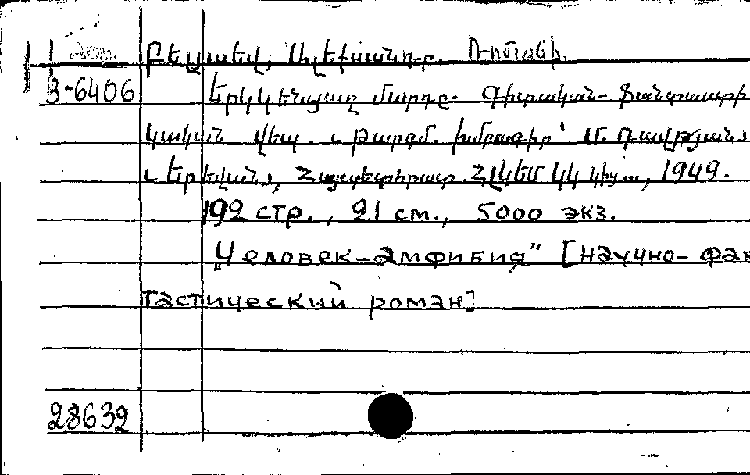 Բելյաեվ, Ալեքսանդր. Ռոմանի.
3-6406 Երկկենցաղ մարդը. Գիտական-ֆանտաստի
կական վեպ: Թարգմ. խմբագիր՝ Մ. Դավթյան:
Երևան, Հայպետհրատ. ՀԼԿԵՄ ԿԿ կից, 1949.
192 стр., 21 см., 5000 экз.
"Человек-амфибия" [научно-фан
тастический роман]
28632